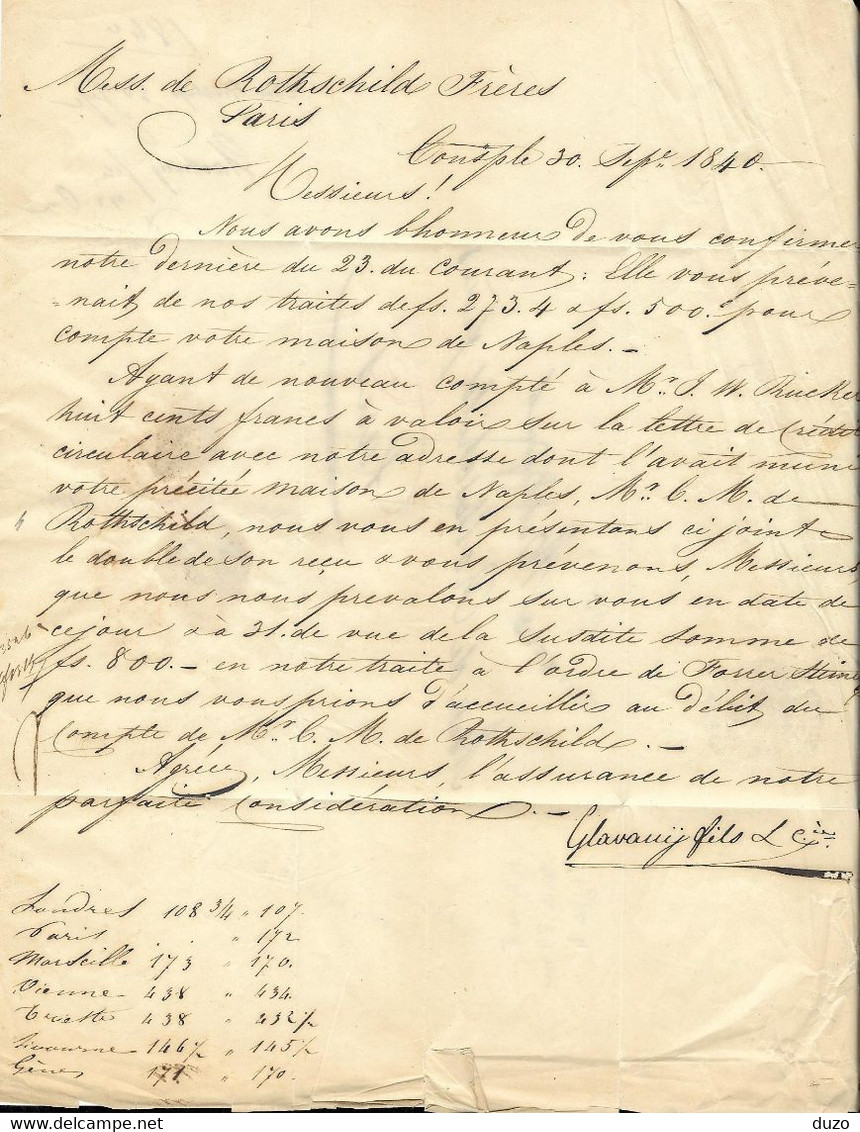 Mess. de Rothschild Frères
Paris
Consple 30. Sepr. 1840.
Messieurs!
Nous avons l'honneur de vous confirmer
notre dernière du 23. du Courant: Elle vous préve-
-nait de nos traites de fs. 273.4 & fs. 500.- pour
compte votre maison de Naples. -
Ayant de nouveau compté à Mr. J. W. Rucker
huit cents francs à valoir sur la lettre de Crédit
circulaire avec notre adresse dont l'avait muni
votre précitée maison de Naples, Mr. C. M. de
Rothschild, nous vous en présentons ci joint
le double de son reçu & vous prévenons, Messieurs,
que nous nous prevalons sur vous en date de
ce jour & à 31. de vue de la susdite somme de
fs. 800. - en notre traite à l'ordre de Forrer
que nous vous prions d'accueillir au débit du
Compte de Mr. C. M. de Rothschild. -
Agréez, Messieurs, l'assurance de notre
parfaite Considération. -
Glavany fils & Cie.
Londres 108 3/4 " 107.
Paris . . " 172
Marseille 173 " 170.
Vienne 438 " 434.
Trieste 438 " 432 1/2
Livourne 146 1/2 " 145 1/2
Gènes 171. " 170.